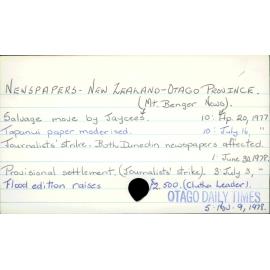 NEWSPAPERS - NEW ZEALAND - OTAGO PROVINCE.
(Mt. Benger News).
Salvage move by Jaycees. 10: Ap. 20, 1977.
Tapanui paper modernised. 10: July 16, "
Journalists' strike. Both Dunedin newspapers affected.
1: June 30, 1978.
Provisional settlement. (Journalists' strike). 3: July 3, "
Flood edition raises $2,500. (Clutha Leader).
OTAGO DAILY TIMES
5: Nov. 9, 1978.